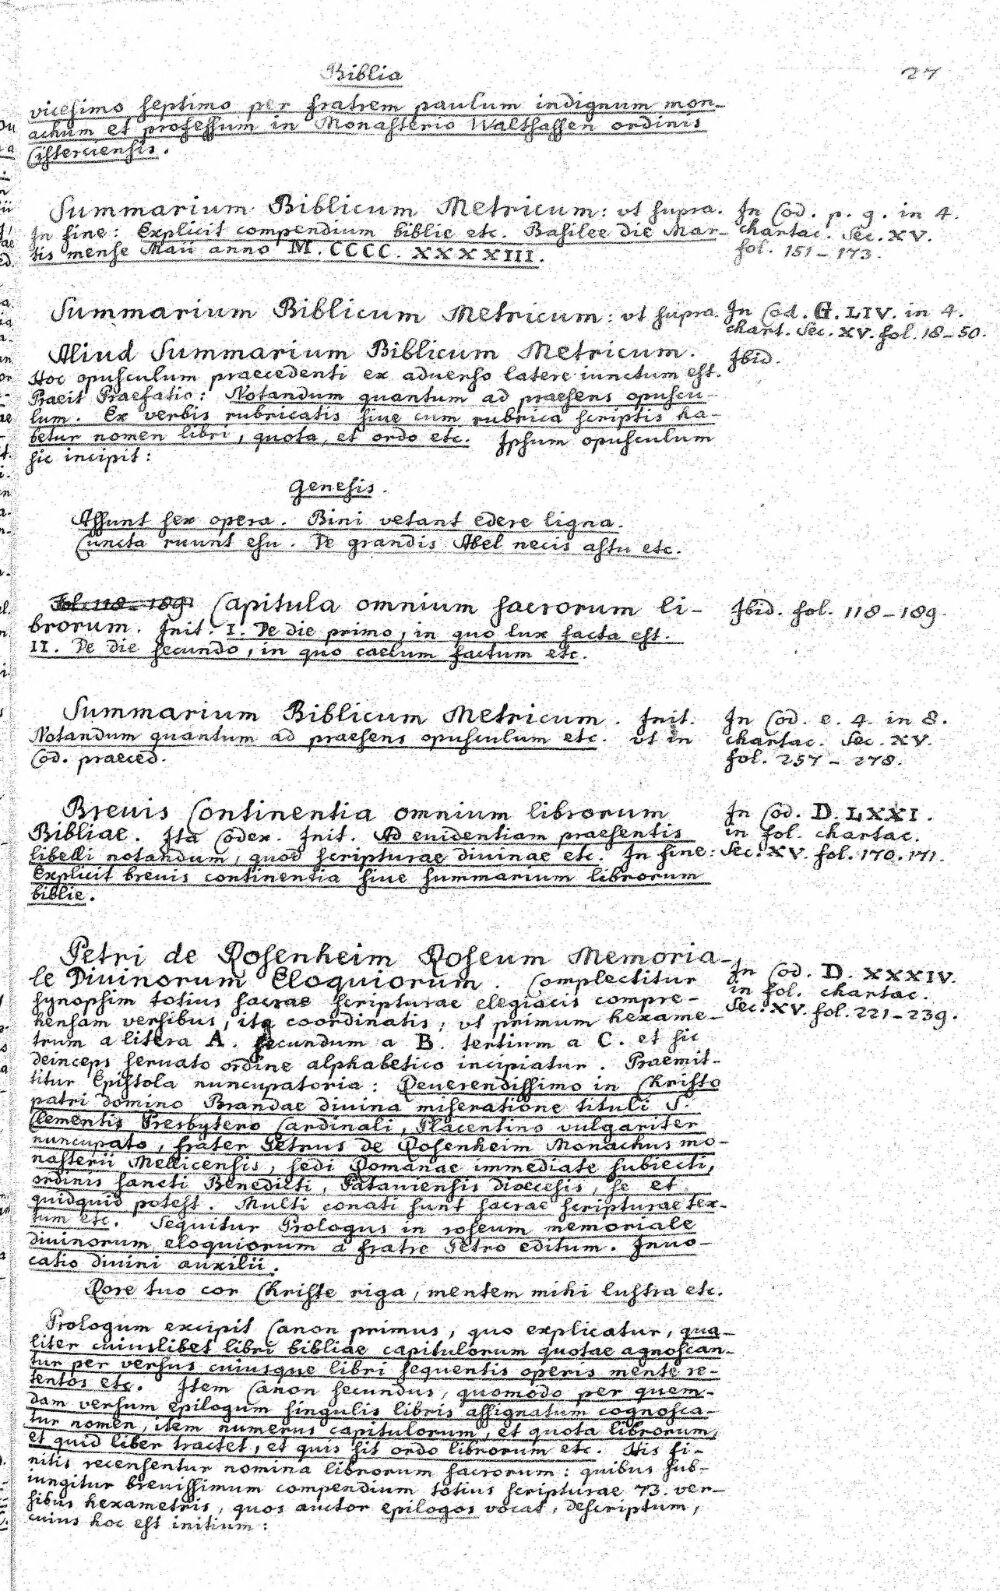 Biblia
27
vicesimo septimo per fratrem paulum indignum mon-
achum et professum in Monasterio Waltsassen ordinis
Cisterciensis.
Summarium Biblicum Metricum: vt supra.
In fine: Explicit compendium biblie etc. Basilee die Mar-
tis mense Maii anno M.CCCC.XXXXIII.
In Cod. p. 9. in 4.
chartac. Sec. XV.
fol. 151–173.
Summarium Biblicum Metricum: vt supra.
In Cod. G. LIV. in 4.
chart. Sec. XV. fol. 18–50.
Aliud Summarium Biblicum Metricum.
Hoc opusculum praecedenti ex aduerso latere iunctum est.
Praeit Praefatio: Notandum quantum ad praesens opuscu-
lum. Ex verbis rubricatis siue cum rubrica scriptis ha-
betur nomen libri, quota, et ordo etc. Ipsum opusculum
sic incipit:
Ibid.
Genesis.
Assunt sex opera. Bini vetant edere ligna.
Cuncta ruunt esu. De grandis Abel necis astu etc.
Fol. 118–189. Capitula omnium sacrorum li-
brorum. Init. I. De die primo, in quo lux facta est.
II. De die secundo, in quo caelum factum etc.
Ibid. fol. 118–189.
Summarium Biblicum Metricum. Init.
Notandum quantum ad praesens opusculum etc. vt in
Cod. praeced.
In Cod. e. 4. in 8.
chartac. Sec. XV.
fol. 257–278.
Breuis Continentia omnium librorum
Bibliae. Ita Codex. Init. Ad euidentiam praesentis
libelli notandum, quod scripturae diuinae etc. In fine:
Explicit breuis continentia siue summarium librorum
biblie.
In Cod. D. LXXI.
in fol. chartac.
Sec. XV. fol. 170. 171.
Petri de Rosenheim Roseum Memoria-
le Diuinorum Eloquiorum. Complectitur
synopsim totius sacrae scripturae elegiacis compre-
hensam versibus, ita coordinatis, vt primum hexame-
trum a litera A. secundum a B. tertium a C. et sic
deinceps seruato ordine alphabetico incipiatur. Praemit-
titur Epistola nuncupatoria: Reuerendissimo in Christo
patri domino Brandae diuina miseratione tituli S.
Clementis Presbytero Cardinali, Placentino vulgariter
nuncupato, frater Petrus de Rosenheim Monachus mo-
nasterii Mellicensis, sedi Romanae immediate subiecti,
ordinis sancti Benedicti, Pataniensis dioecesis, se et
quidquid potest. Multi conati sunt sacrae scripturae tex-
tum etc. Sequitur Prologus in roseum memoriale
diuinorum eloquiorum a fratre Petro editum. Inuo-
catio diuini auxilii.
In Cod. D. XXXIV.
in fol. chartac.
Sec. XV. fol. 221–239.
Rore tuo cor Christe riga, mentem mihi lustra etc.
Prologum excipit Canon primus, quo explicatur, qua-
liter cuiuslibet libri bibliae capitulorum quotae agnoscan-
tur per versus cuiusque libri sequentis operis mente re-
tentos etc. Item Canon secundus, quomodo per quem-
dam versum epilogum singulis libris assignatum cognosca-
tur nomen, item numerus capitulorum, et quota librorum,
et quid liber tractet, et quis sit ordo librorum etc. His fi-
nitis recensentur nomina librorum sacrorum: quibus sub-
iungitur breuissimum compendium totius scripturae 73. ver-
sibus hexametris, quos auctor epilogos vocat, descriptum,
cuius hoc est initium: